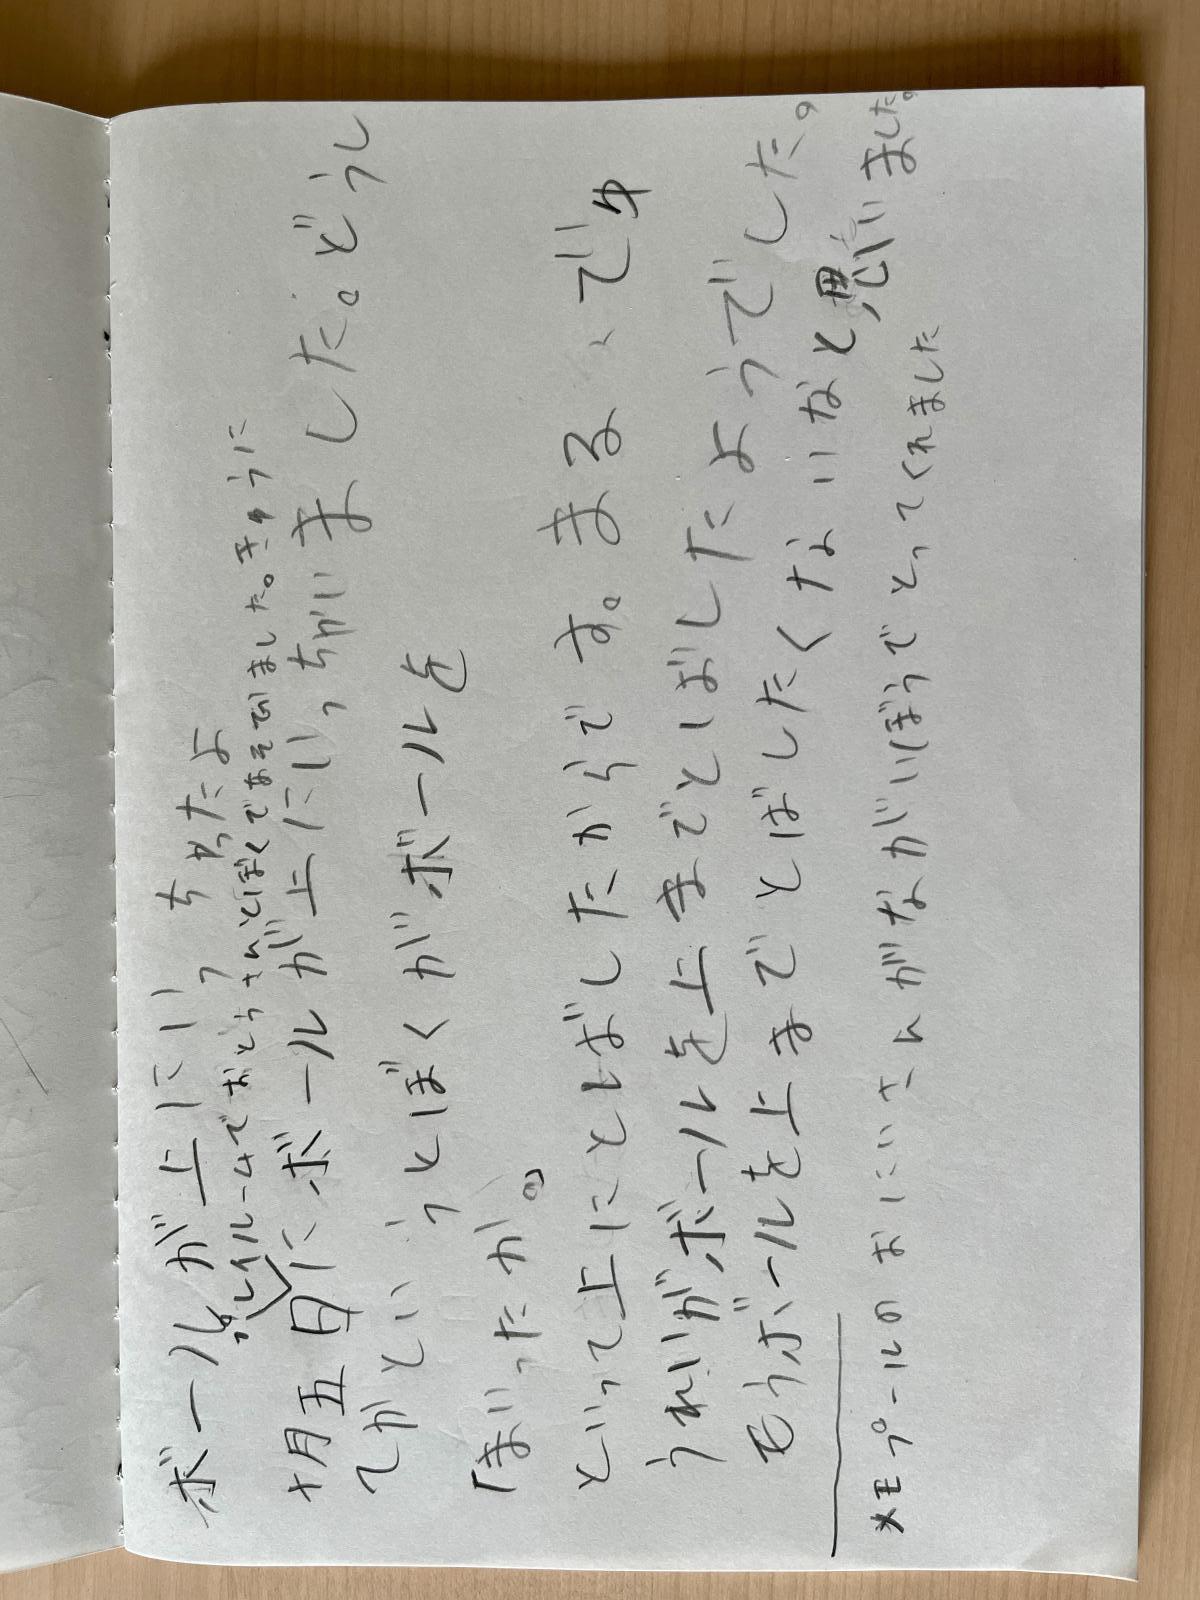 ボールが上にいっちゃったよ
プレイルームでおとうさんとぼくであそびました。きゅうに
十月五日にボールが上にいっちがいました。どうし
てかというとぼくがボールを
「まいったか。」
といって上にとばしたからです。まる、でゆ
うれいがボールを上までとばしたようでした。
もうボールを上までとばしたくないなと思いました。
メモプールのおにいさんがながいぼうでとってくれました